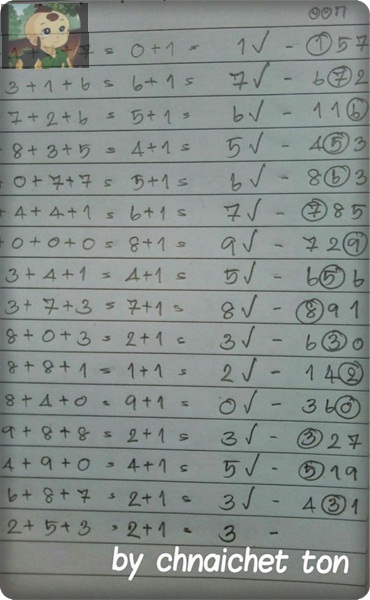 ออก
7 = 0+1 = 1 ✓ - 157
3+1+6 = 6+1 = 7 ✓ - 672
7+2+6 = 5+1 = 6 ✓ - 116
8+3+5 = 4+1 = 5 ✓ - 453
0+7+7 = 5+1 = 6 ✓ - 863
4+4+1 = 6+1 = 7 ✓ - 785
0+0+0 = 8+1 = 9 ✓ - 729
3+4+1 = 4+1 = 5 ✓ - 656
3+7+3 = 7+1 = 8 ✓ - 891
8+0+3 = 2+1 = 3 ✓ - 630
8+8+1 = 1+1 = 2 ✓ - 142
8+4+0 = 9+1 = 0 ✓ - 360
9+8+8 = 2+1 = 3 ✓ - 327
4+9+0 = 4+1 = 5 ✓ - 519
6+8+7 = 2+1 = 3 ✓ - 431
2+5+3 = 2+1 = 3 -
by chnaichet ton